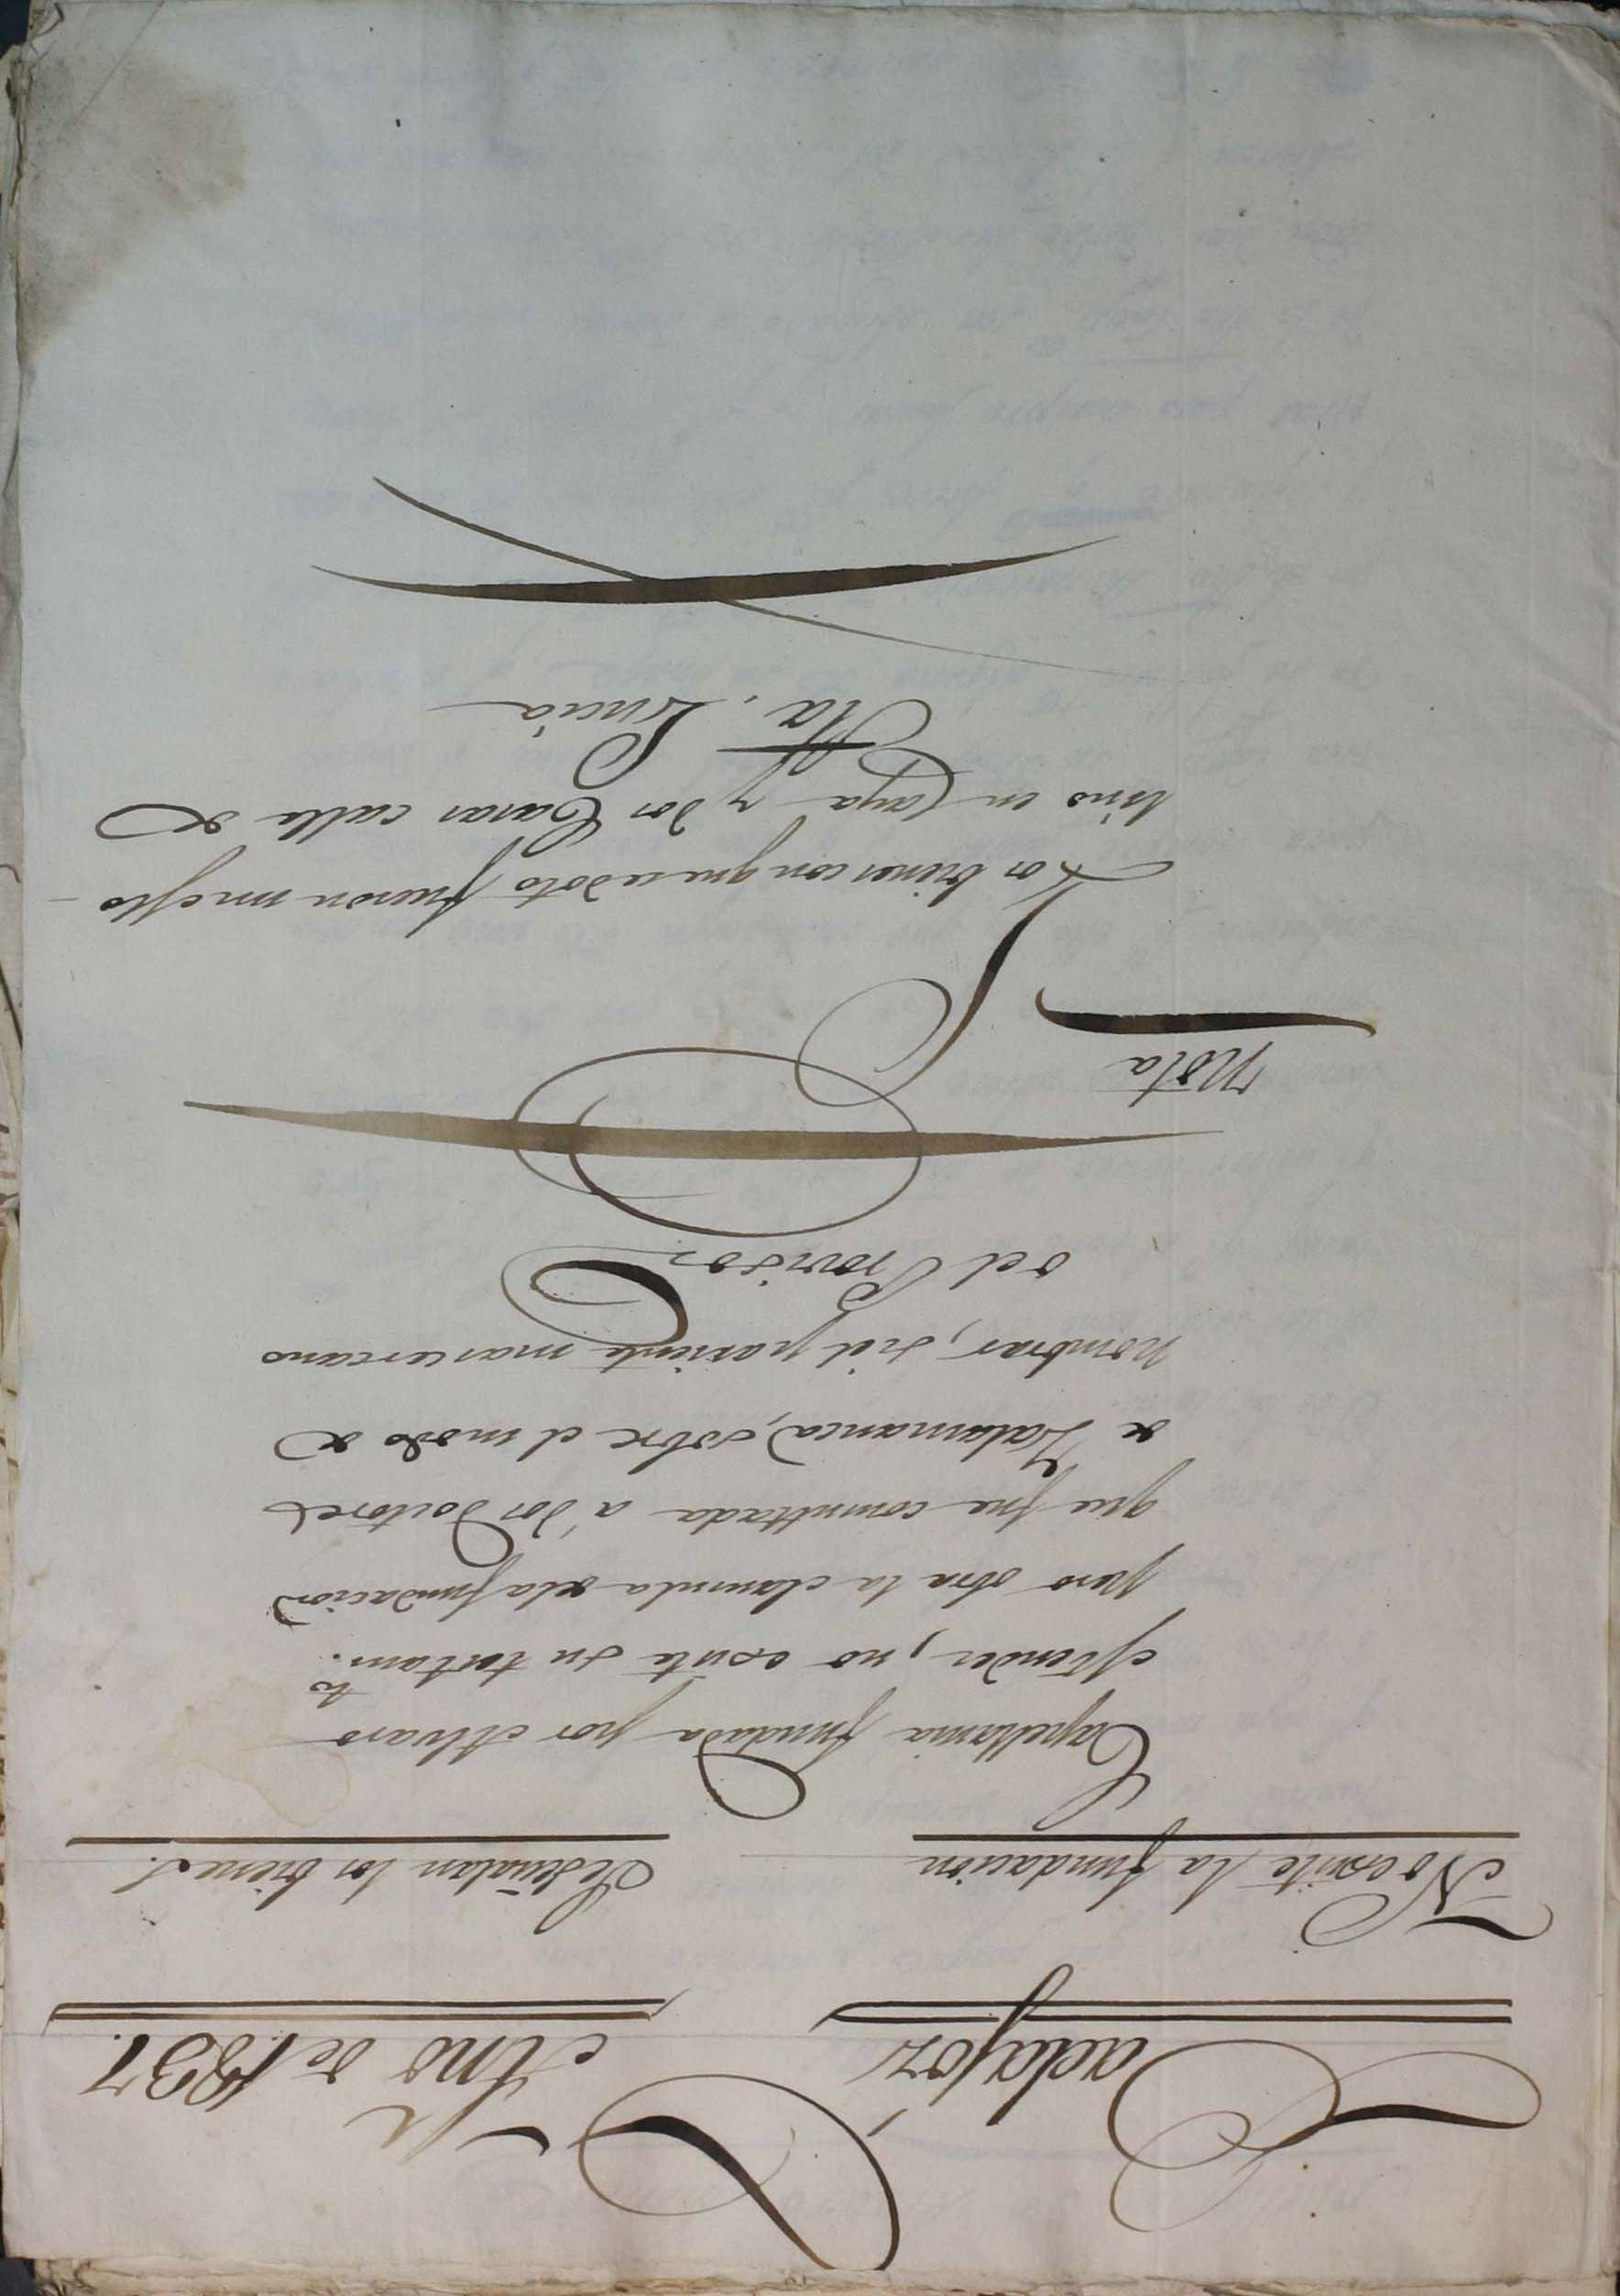 Badajoz
Año de 1837.
No existe la fundacion
Se señalan los bienes.
Capellania fundada por Alvaro
estender, no existe su testam.to
pero obra la clausula de la fundacion
que fue comuttada a dos Doctores
de Salamanca, sobre el modo de
nombrar, si el pariente mas cercano
o el Provisor
Nota
Los bienes con que se doto fueron un
vino en Caya y dos Casas calle de
Sta. Lucia